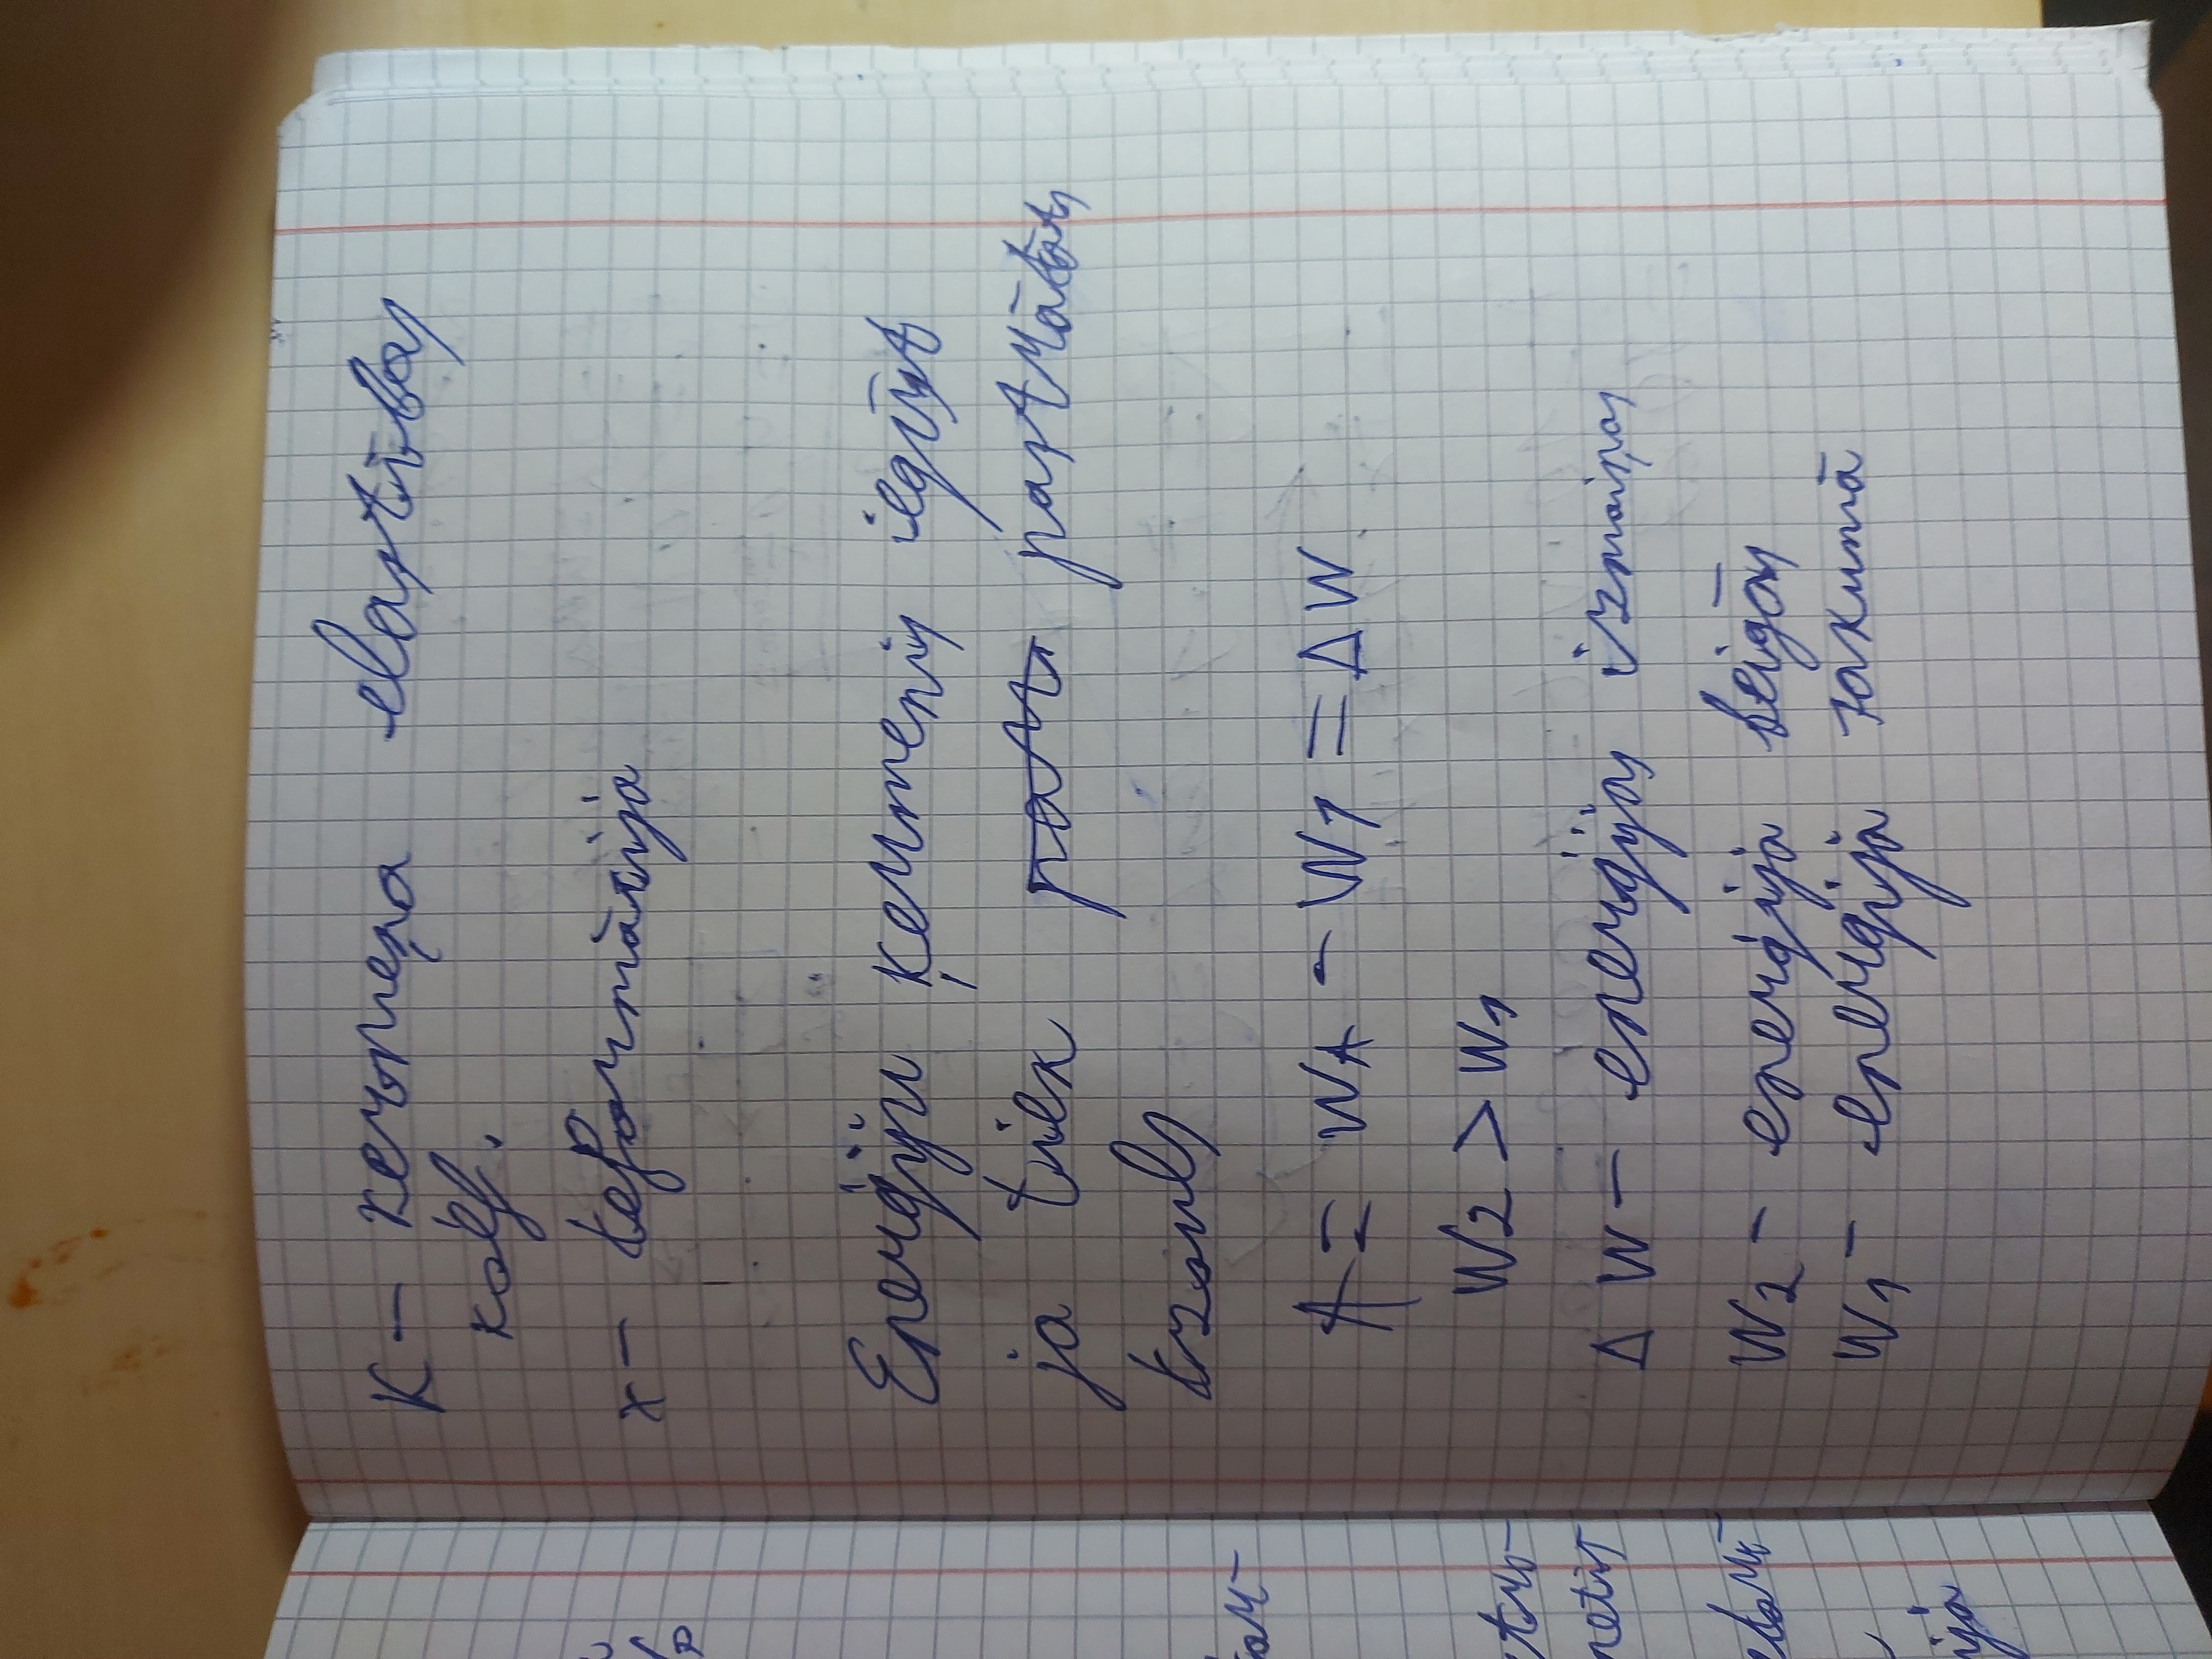 K - ķermeņa elastības
koef.
x - deformācija
Enerģiju ķermenis iegūst
ja tiek pastrādāts
A = WA - W1 = ΔW
W2 > W1
ΔW - enerģijas izmaiņas
W2 - enerģija beigās
W1 - enerģija sākumā